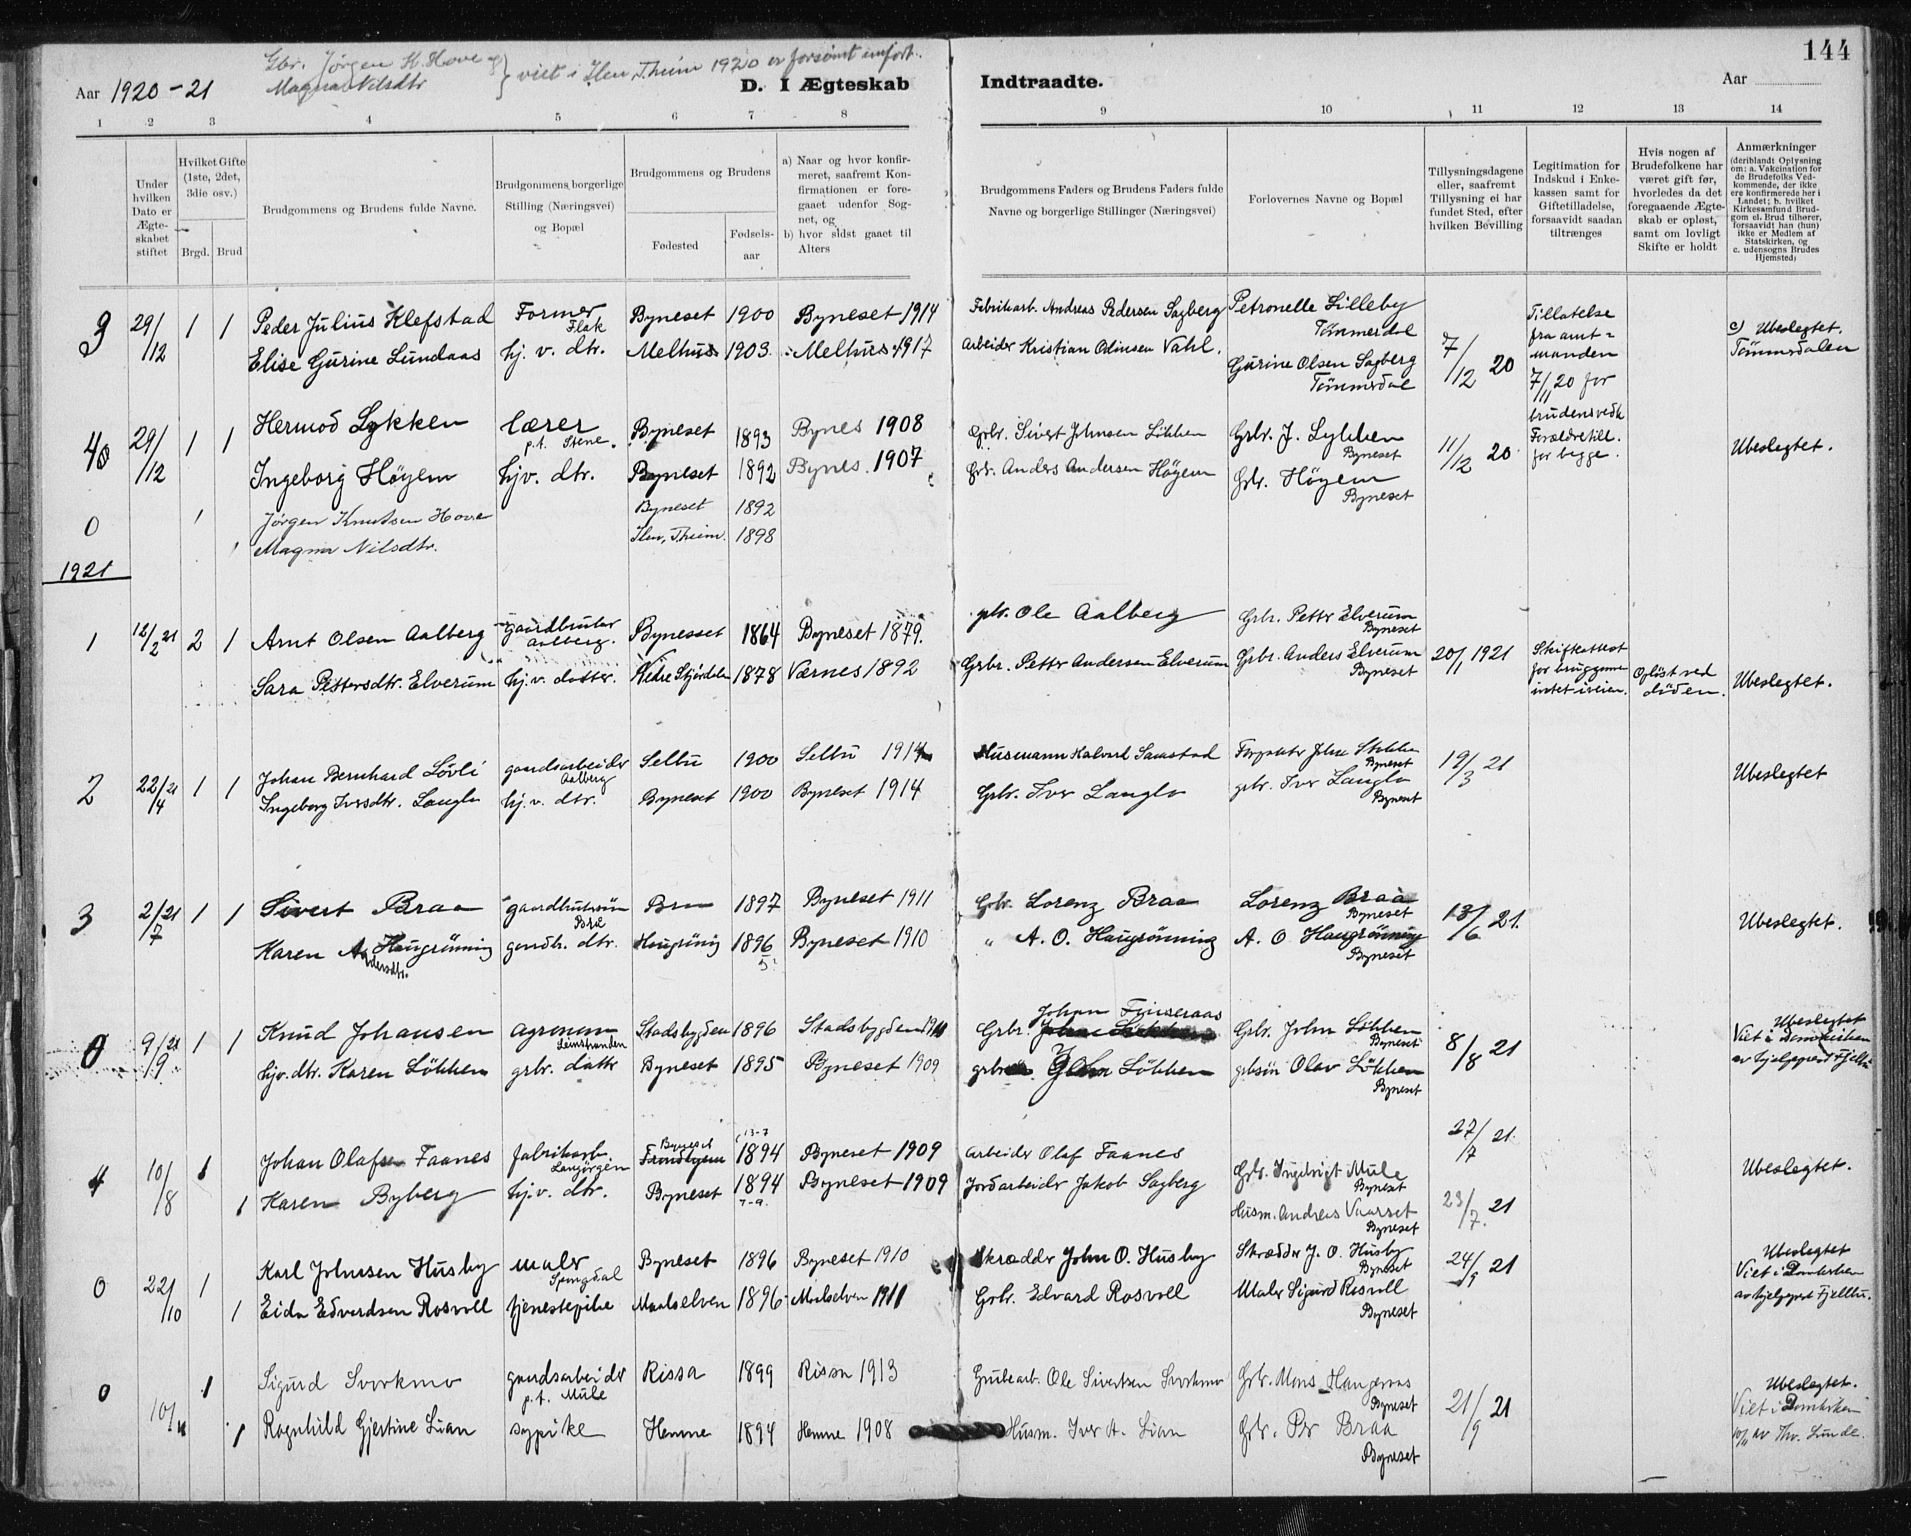 144
Gbr. Jørgen K. Hove og } viet i Ilen, Theim 1920 er forsømt indført.
Magna Nilsdtr
Aar 1920-21
D. I Ægteskab Indtraadte.
Aar
1 2 3 4 5 6 7 8 9 10 11 12 13 14
Under hvilken Dato er Ægteskabet stiftet
Hvilket Gifte (1ste, 2det, 3die osv.)
Brgd. Brud
Brudgommens og Brudens fulde Navne.
Brudgommens borgerlige Stilling (Næringsvei) og Bopæl
Brudgommens og Brudens
Fødested
Fødselsaar
a) Naar og hvor konfirmeret, saafremt Konfirmationen er foregaaet udenfor Sognet, og
b) hvor sidst gaaet til Alters
Brudgommens Faders og Brudens Faders fulde Navne og borgerlige Stillinger (Næringsvei)
Forlovernes Navne og Bopæl
Tillysningsdagene eller, saafremt Tillysning ei har fundet Sted, efter hvilken Bevilling
Legitimation for Indskud i Enkekassen samt for Giftetilladelse, forsaavidt saadan tiltrænges
Hvis nogen af Brudefolkene har været gift før, hvorledes da det foregaaende Ægteskab er opløst, samt om lovligt Skifte er holdt
Anmærkninger
(deriblandt Oplysning om: a. Vakcination for de Brudefolks Vedkommende, der ikke ere konfirmerede her i Landet; b. hvilket Kirkesamfund Brudgom el. Brud tilhører, forsaavidt han (hun) ikke er Medlem af Statskirken, og c. udensogns Brudes Hjemsted)
9 29/12 1 1 Peder Julius Klefstad Former Flak Byneset 1900 Byneset 1914 Fabrikarb. Andreas Pedersen Sagberg Petronelle Lilleby Tømmerdal 7/12 20 Tillatelse fra amtmanden 7/11 20 for brudensvedk. c) Ubeslegtet. Tømmerdalen
Elise Gurine Lundaas hj. v. dtr. Melhus 1903. Melhus 1917 Arbeider Kristian Odinsen Vahl. Gurine Olsen Sagberg Tømmerdal
29/12 1 1 Hermod Lykken lærer p.t. Stene. Byneset 1893 Bynes 1908 Gbr. Sivert Johnsen Løkken Gbr. J. Lykken Byneset 11/12 20 Forældretill. for begge. Ubeslegtet.
Ingeborg Høyem hjv. dtr. Byneset 1892 Bynes. 1907 Gbr. Anders Andersen Høyem Gbr. Høyem Byneset
0 1 Jørgen Knutsen Hove Byneset 1892
1 Magna Nilsdtr. Ilen, Theim. 1898
1921
1 12/2 21 2 1 Arnt Olsen Aalberg gaardbruker Aalberg. Bynesset 1864 Byneset 1879. gbr. Ole Aalberg Gbr. Petter Elverum Byneset 20/1 1921 Skifteattest for bruggom intet iveien. Opløst ved døden. Ubeslegtet.
Sara Pettersdtr. Elverum hj. v. datter. Nedre Stjørdalen 1878 Værnes 1892 Grbr. Petter Andersen Elverum Grbr. Anders Elverum Byneset
2 22/4 21 1 1 Johan Bernhard Løvli gaardsarbeider Aalberg Selbu 1900 Selbu 1914 Husmann Halvard Samstad Byneset 19/3 21 Ubeslegtet
Ingeborg Iversdtr. Langlo hj. v. dtr. Byneset 1900 Byneset 1914 Gbr. Iver Langlo gbr. Iver Langlo Byneset
3 2/7 21 1 1 Sivert Braa gaardbrukersøn Braa Braa 1897 Byneset 1911 Gbr. Lorenz Braa Lorenz Braa Byneset 13/6 21. Ubeslegtet.
Karen Andersdtr. Haugrønning gaardbr. dtr. Haugrønnig 1896 Byneset 1910 " A. O. Haugrønning A. O Haugrønning Byneset
0 9/9 21 1 1 Knud Johansen agronom Leinstranden Stadsbygden 1896 Stadsbygden 1911 Grbr. Johan Finseraas Grbr. John Løkken Byneset 8/8 21 Ubeslegtet Viet i Domkirken av hjelpeprest Fjellbu
hjv. dtr. Karen Løkken gbr. datter Byneset 1895 Byneset 1909 John Løkken gbsøn Olav Løkken Byneset
4 10/8 1 Johan Olafsen Faanes fabrikarb. Byneset 13-7 1894 Byneset 1909 Arbeider Olaf Faanes Gbr. Ingebrigt Mule Byneset 27/7 21. Ubeslegtet.
1 Karen Byberg hj.v. dtr. Byneset 1894 7-9. Byneset 1909 Jordarbeider Jakob Sagberg Husm. Andreas Vaarset Byneset 23/7. 21
0 22/10 1 Karl Johnsen Husby maler Spongdal Byneset 1896 Byneset 1910 Skrædder John O. Husby Skrædder J. O. Husby Byneset 24/9 21 Ubeslegtet Viet i Domkirken av hjelpeprest Fjellbu.
1 Eida Edvardsen Rosvoll tjenestepike Maalselven 1896 Maalselven 1911 Gbr. Edvard Rosvoll Maler Sigurd Rosvoll Byneset
0 10/11 1 Sigurd Svorkmo gaardsarbeider p.t. Mule Rissa 1899 Rissa 1913 Grubearb. Ole Sivertsen Svorkmo Gbr. Mons Haugeraas Byneset 21/9 21 Ubeslegtet. Viet i Domkirken 10/11 av Thv. Lunde.
1 Ragnhild Gjertine Lian sypike Hemne 1894 Hemne 1908 Husm. Iver A. Lian Gbr. Per Braa Byneset